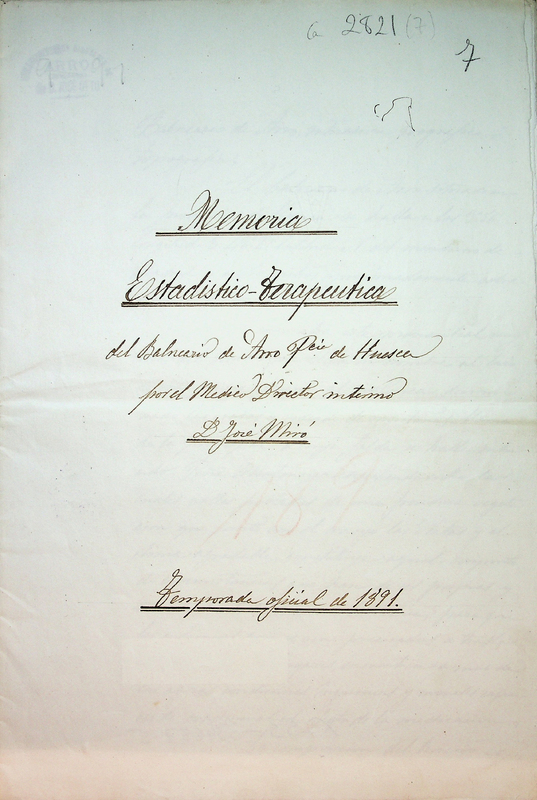 Ca 2821 (7)
7
Memoria
Estadistico-Terapeutica
del Balneario de Arro Pcia de Huesca
por el Medico Director interino
D José Miró
Temporada oficial de 1891.